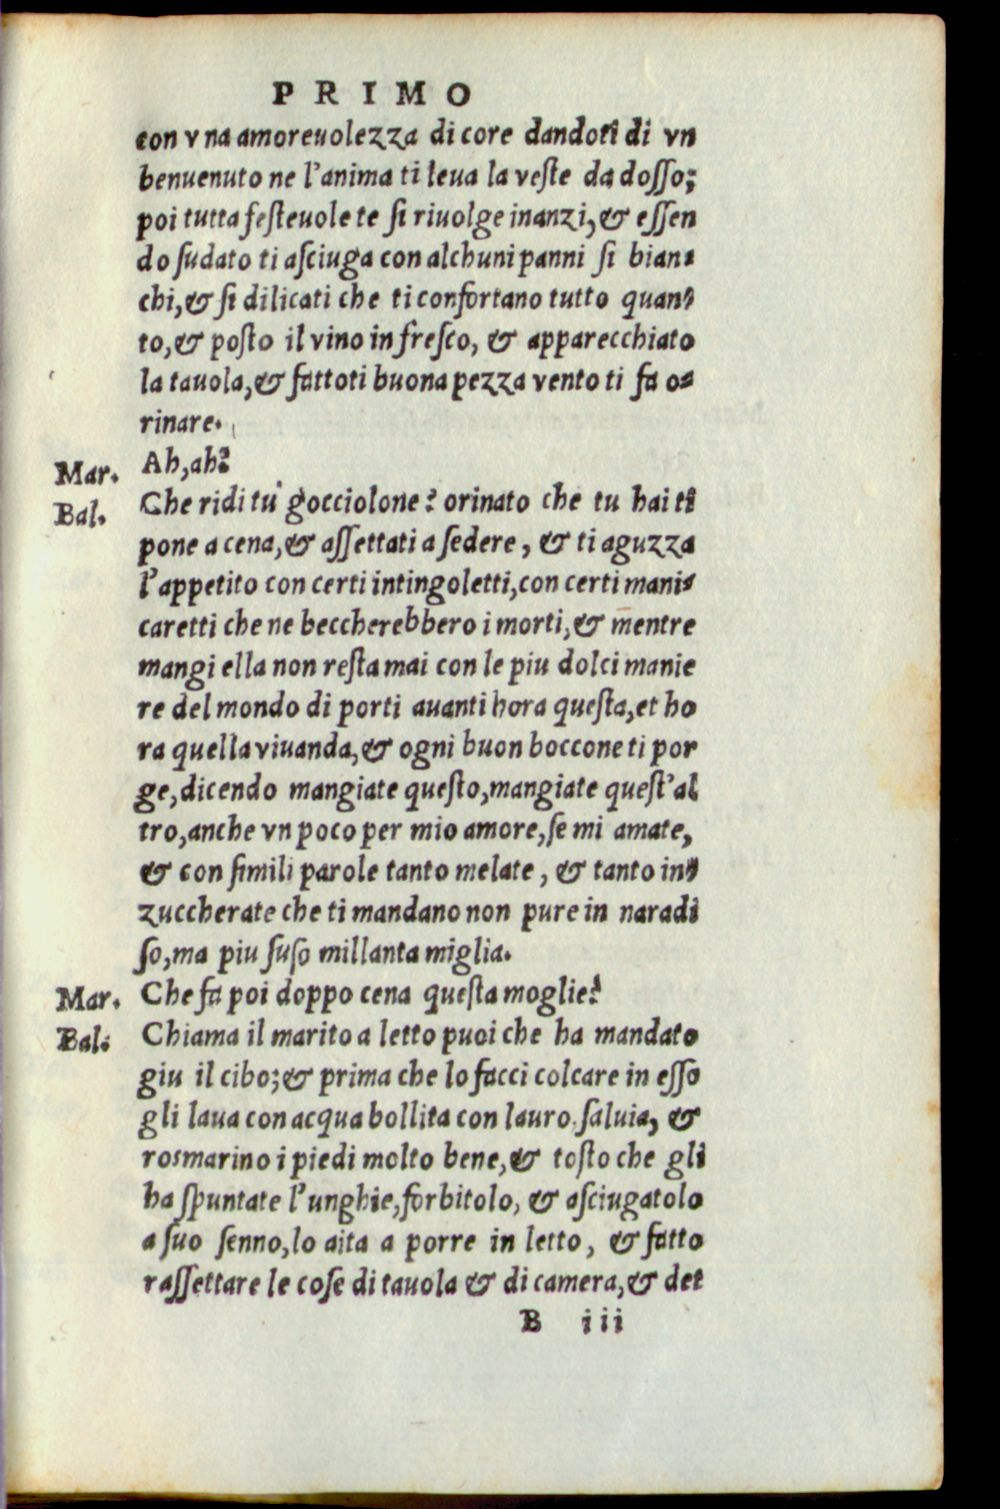 PRIMO
con vna amoreuolezza di core dandoti di vn
benuenuto ne l'anima ti leua la veſte da doſſo;
poi tutta feſteuole te ſi riuolge inanzi, & eſſen
do ſudato ti aſciuga con alchuni panni ſi bian-
chi, & ſi dilicati che ti confortano tutto quan-
to, & poſto il vino in freſco, & apparecchiato
la tauola, & fattoti buona pezza vento ti fa o-
rinare.
Mar. Ah, ah?
Bal. Che ridi tu gocciolone? orinato che tu hai ti
pone a cena, & aſſettati a ſedere, & ti aguzza
l'appetito con certi intingoletti, con certi mani-
caretti che ne beccherebbero i morti, & mentre
mangi ella non reſta mai con le piu dolci manie
re del mondo di porti auanti hora queſta, et ho
ra quella viuanda, & ogni buon boccone ti por
ge, dicendo mangiate queſto, mangiate queſt'al
tro, anche vn poco per mio amore, ſe mi amate,
& con ſimili parole tanto melate, & tanto in-
zuccherate che ti mandano non pure in naradi
ſo, ma piu ſuſo millanta miglia.
Mar. Che fa poi doppo cena queſta moglie?
Bal. Chiama il marito a letto puoi che ha mandato
giu il cibo; & prima che lo facci colcare in eſſo
gli laua con acqua bollita con lauro. ſaluia, &
roſmarino i piedi molto bene, & toſto che gli
ha ſpuntate l'unghie, forbitolo, & aſciugatolo
a ſuo ſenno, lo aita a porre in letto, & fatto
raſſettare le coſe di tauola & di camera, & det
B iii